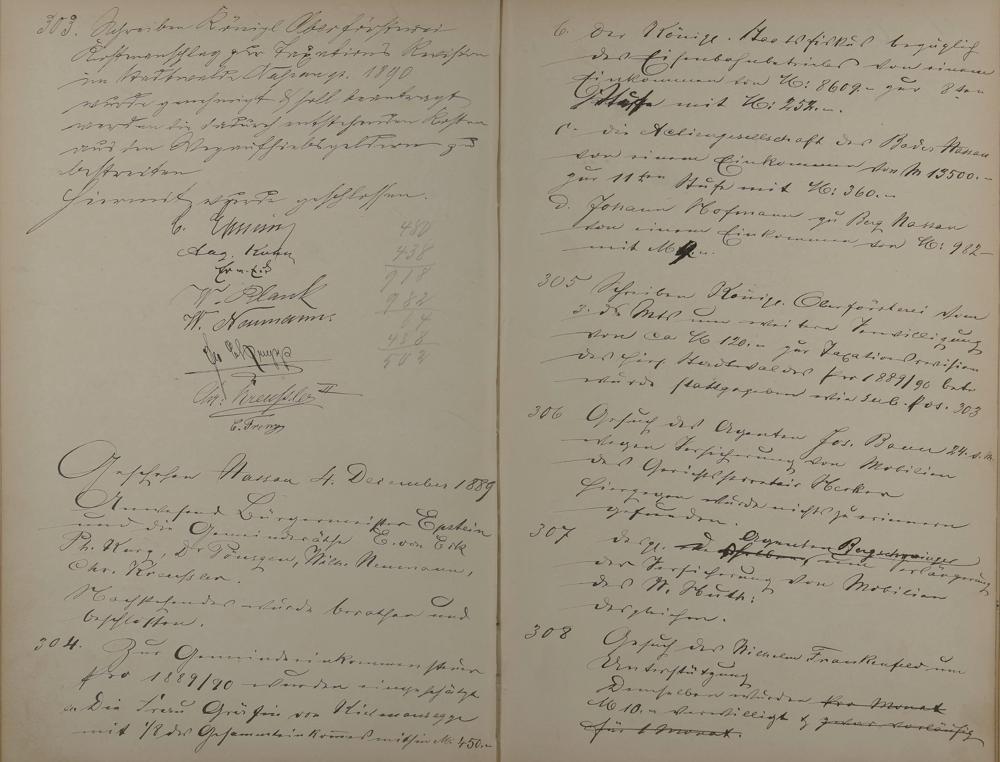 303. Schreiben Königl Oberförsterei
Kostenanschlag zur Taxations Revision
im Stadtwalde Nassau pr. 1890
wurde genehmigt & soll beantragt
werden die dadurch entstehenden Kosten
aus den
bestreiten
Hiermit wurde geschlossen.
C. Epstein
Aug. Kuhn
E. v. Eck
W. Plank
W. Naumann.
Chr. Kreussler II
480
438
918
982
64
438
502
Geschehen Nassau 4. Dezember 1889
Anwesend Bürgermeister Epstein
und die Gemeinderäthe E. von Eck
Ph. Kurz, Dr Poensgen, Wilh. Neumann,
Chr. Kreussler.
Nachstehendes wurde berathen und
beschlossen.
304. Zur Gemeindeeinkommensteuer
pro 1889/90 wurden eingeschätzt
a. Die Frau Gräfin von Kielmansegge
mit 1/2 des Gesammteinkommens mithin M. 450.-
b. der Königl. Staatsfiskus bezüglich
des Eisenbahnbetriebes von einem
Einkommen von M: 8609.- zur 8ten
Stufe mit M: 252.-
c. die Actiengesellschaft des Bades Nassau
von einem Einkommen von M 13500.-
zur 11ten Stufe mit M: 360.-
d. Johann Hofmann zu Berg Nassau
von einem Einkommen von M: 982-
mit M 9.-
305 Schreiben Königl. Oberförsterei vom
3. ds Mts um weitere Verwilligung
von ca M 120.- zur Taxationsrevision
des hies. Stadtwaldes pro 1889/90 betr.
wurde stattgegeben wie sub. pos. 303
306 Gesuch des Agenten Jos. Baun 24. d. M.
wegen Versicherung von Mobilien
des Gerichtssecretair Necker
hiergegen wurde nichts zu erinnern
gefunden.
307 desgl. Agenten Bergschwinger
um Verlängerung
der Versicherung von Mobilien
des N. Huth:
desgleichen.
308 Gesuch des Wilhelm Frankenfeld um
Unterstützung
Demselben wurden pro Monat
M 10.- verwilligt & zwar vorläufig
für 1 Monat.